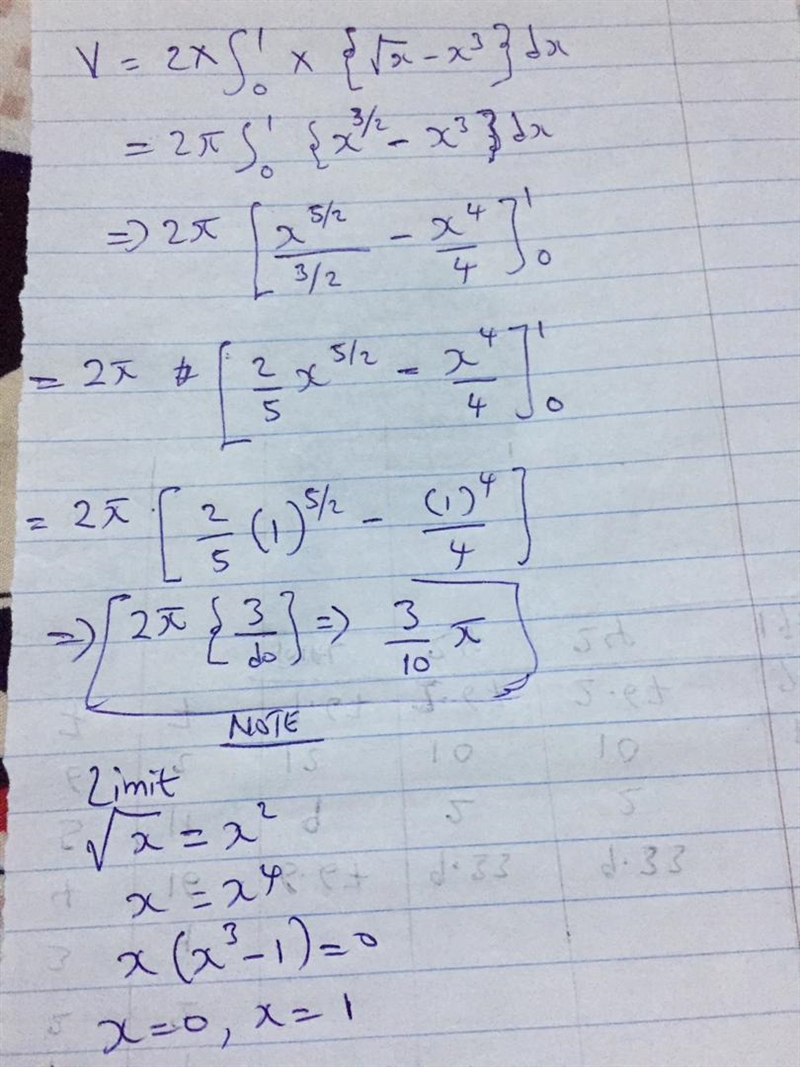 V = 2x ∫₀¹ x {√x - x³} dx
= 2π ∫₀¹ {x^{3/2} - x³} dx
=> 2π [x^{5/2}/(3/2) - x⁴/4]₀¹
= 2π [2/5 x^{5/2} - x⁴/4]₀¹
= 2π [2/5 (1)^{5/2} - (1)⁴/4]
=> 2π {3/20} => 3/10 π
NOTE
Limit
√x = x²
x = x⁴
x (x³ - 1) = 0
x = 0, x = 1